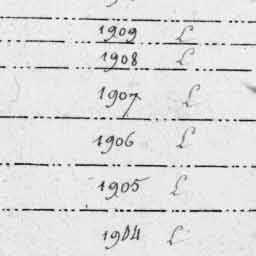 1909 L
1908 L
1907 L
1906 L
1905 L
1904 L